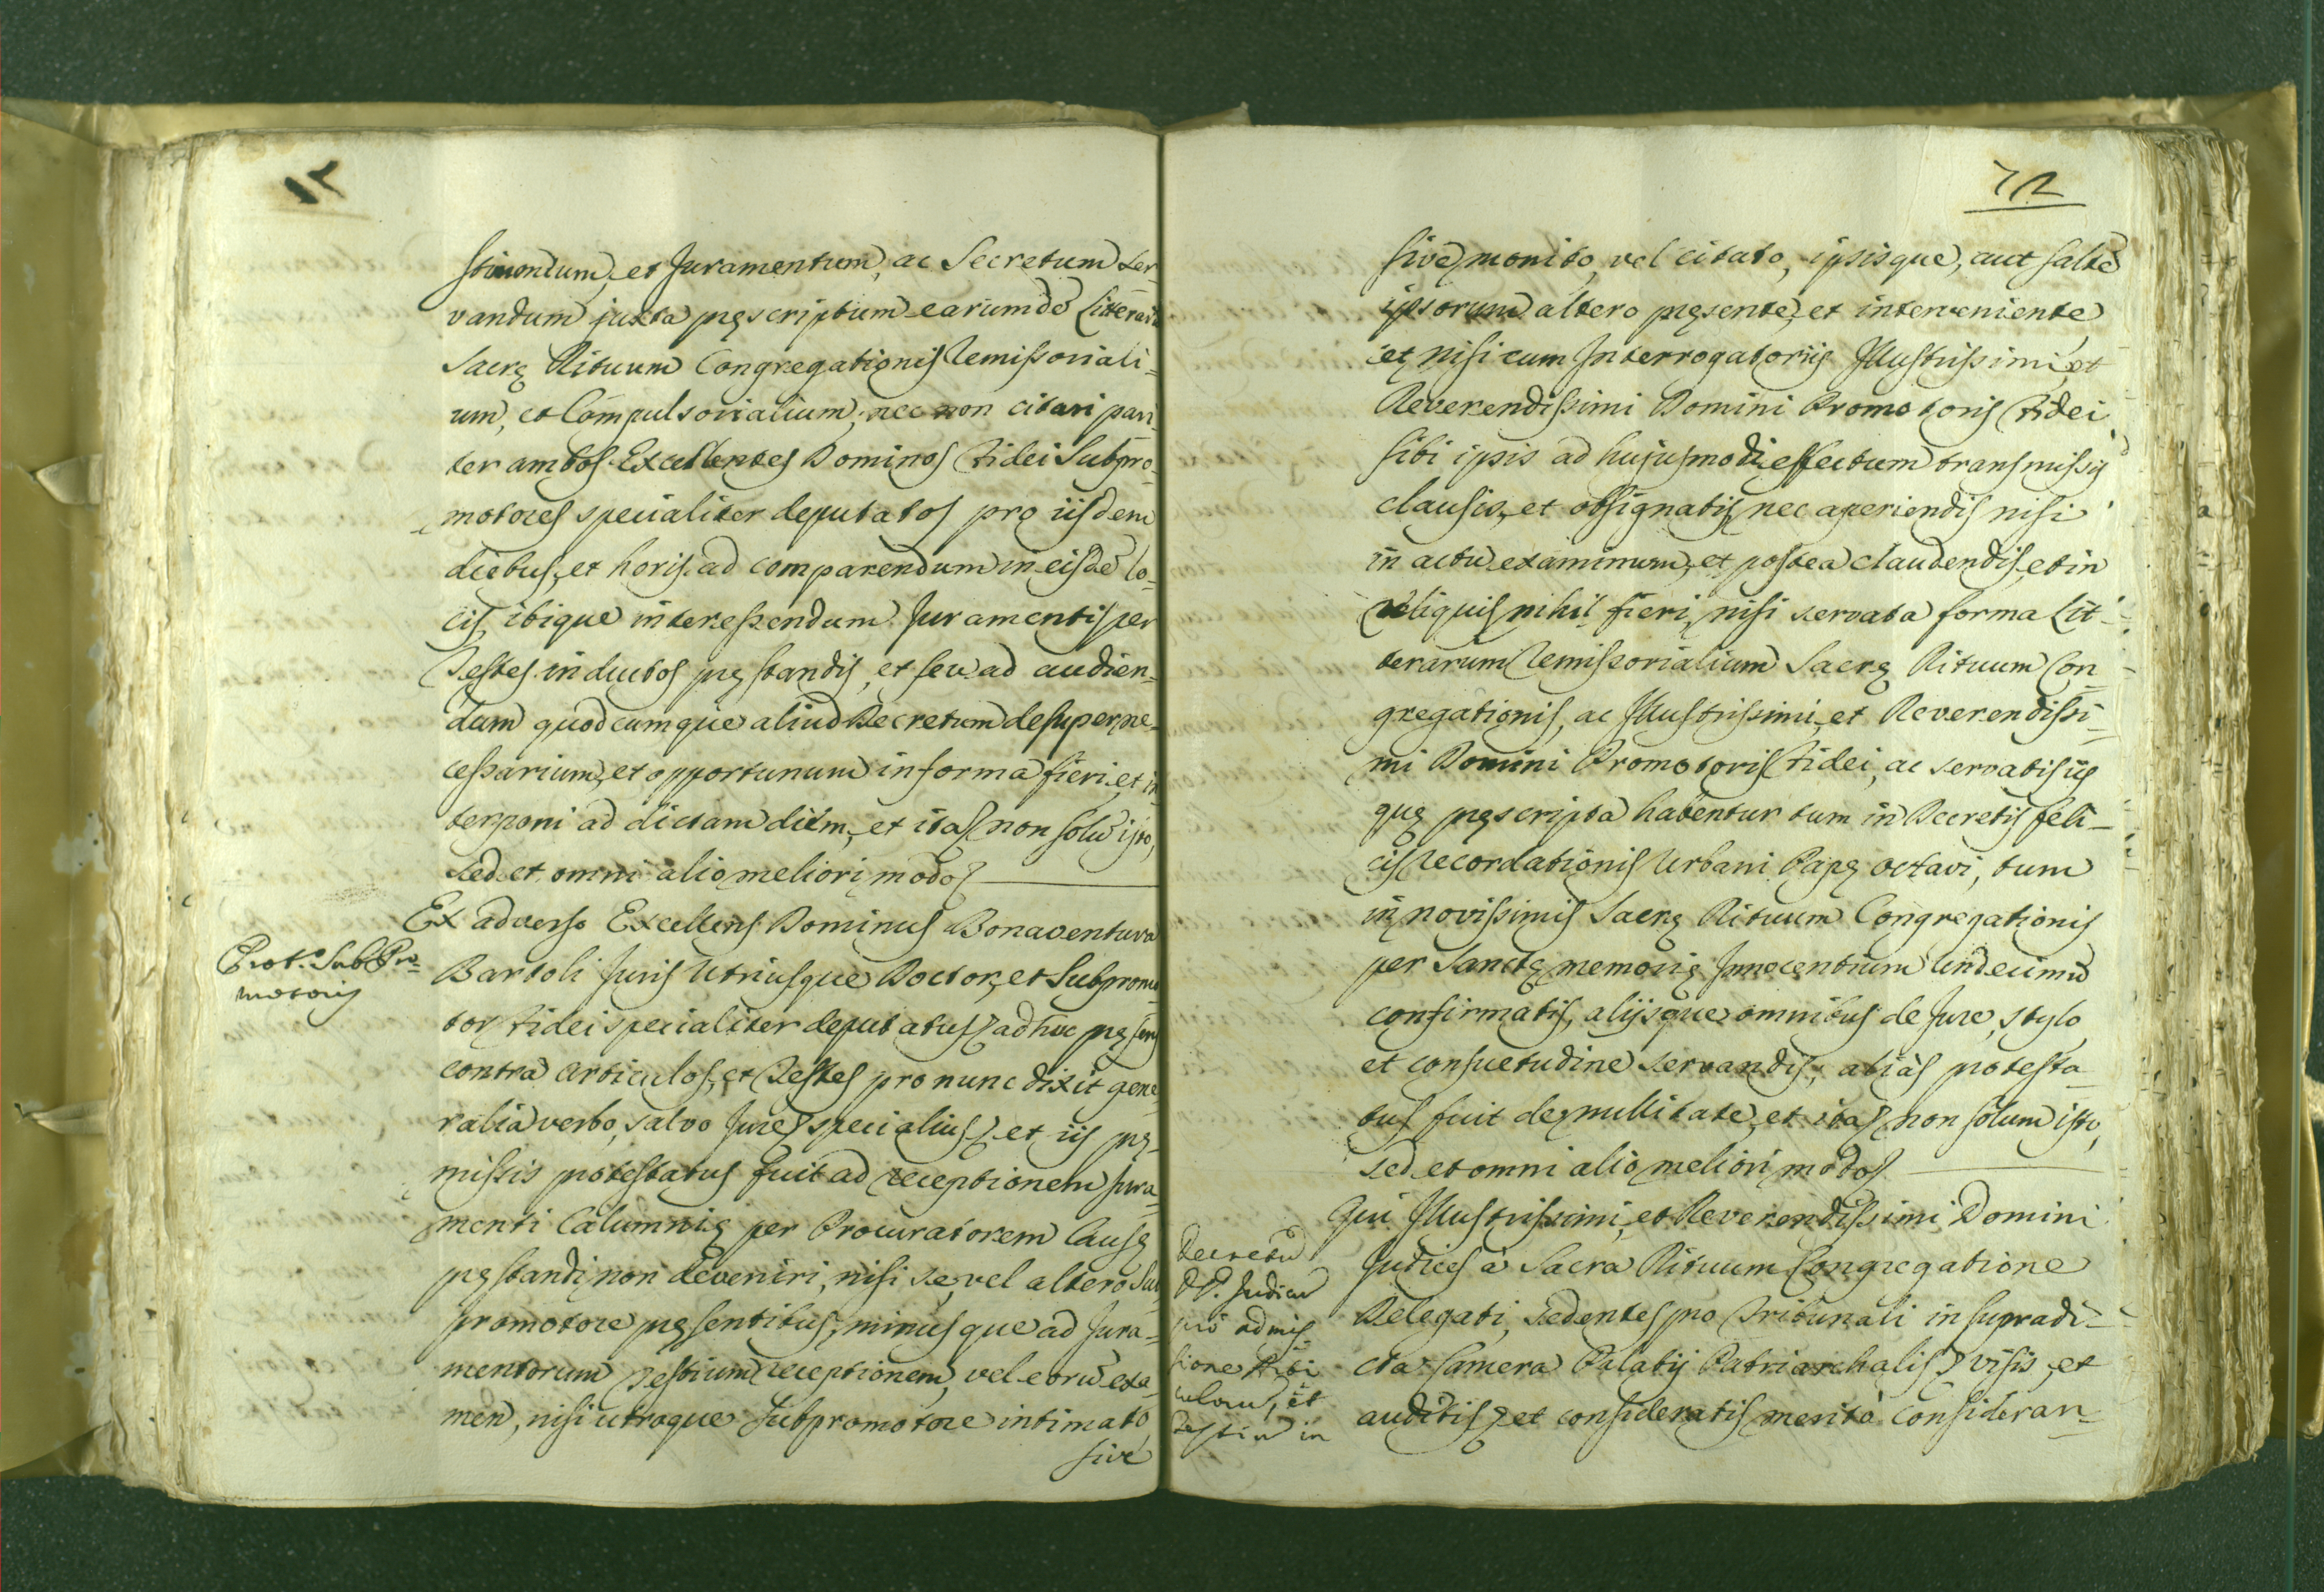 stimonium, et Juramentum, ac Secretum ser
vandum juxta pręscriptum earumdē Litterarū
Sacrę Rituum Congregationis Remissoriali=
um, et Compulsorialium; nec non citari pari
ter ambos Excellentes Dominos Fidei Subpro=
motores specialiter deputatos pro iisdem
diebus, et horis ad comparendum in eisdē lo=
cis, ibique interessendum Juramentis per
Testes inductos pręstandis, et seu ad audien=
dum quodcumque aliud Decretum desuper ne=
cessarium, et opportunum in forma fieri, et in
terponi ad dictam diem, et ita non solū isto,
sed et omni alio meliori modo
Ex adverso Excellens Dominus Bonaventura
Prot.o SubPro=
motoris
Bartoli Juris Utriusque Doctor, et Subpromo
tor Fidei specialiter deputatus ad hoc pręsens
contra articulos, et Testes pro nunc dixit gene
ralia verbo, salvo Jure specialius et iis prę
missis protestatus fuit ad receptionem Jura
menti Calumnię per Procuratorem Causę
pręstandi non deveniri, nisi se, vel altero Sub
promotore pręsentibus, minusque ad Jura=
mentorum Testium receptionem, vel eorū exa=
men, nisi utroque Subpromotore intimato,
sive
72
sive monito, vel citato, ipsisque, aut saltē
ipsorum altero pręsente, et interveniente
et nisi cum Interrogatoriis Illustrissimi, et
Reverendissimi Domini Promotoris Fidei
sibi ipsis ad hujusmodi effectum transmissis
clausis, et obsignatis, nec aperiendis nisi
in actu examinum, et postea claudendis, et in
reliquis nihil fieri, nisi servata forma Lit=
terarum Remissorialium Sacrę Rituum Con=
gregationis, ac Illustrissimi, et Reverendissi=
mi Domini Promotoris Fidei, ac servatis iis
quę pręscripta habentur tum in Decretis feli=
cis recordationis Urbani Papę octavi, tum
in novissimis Sacrę Rituum Congregationis
per Sanctę memorię Innocentium Undecimū
confirmatis, alijsque omnibus de Jure, stylo
et consuetudine servandis; aliàs protesta=
tus fuit de nullitate, et ita non solum isto,
sed et omni alio meliori modo
Qui Illustrissimi, et Reverendissimi Domini
Decretū
DD. Judicū
pro admis
sione Arti
culorū, et
Testiū in
Judices à Sacra Rituum Congregatione
Delegati, sedentes pro Tribunali in supradi=
cta Camera Palatij Patriarchalis visis, et
auditis et consideratis meritò consideran=